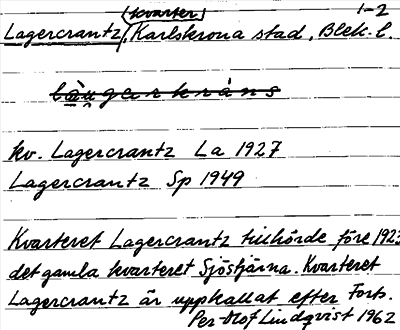 1-2
(kvarter)
Lagercrantz, Karlskrona stad, Blek. l.
làu̯gerkráns
kv. Lagercrantz La 1927
Lagercrantz Sp 1949
Kvarteret Lagercrantz tillhörde före 1923
det gamla kvarteret Sjöstjärna. Kvarteret
Lagercrantz är uppkallat efter Forts.
Per-Olof Lindqvist 1962